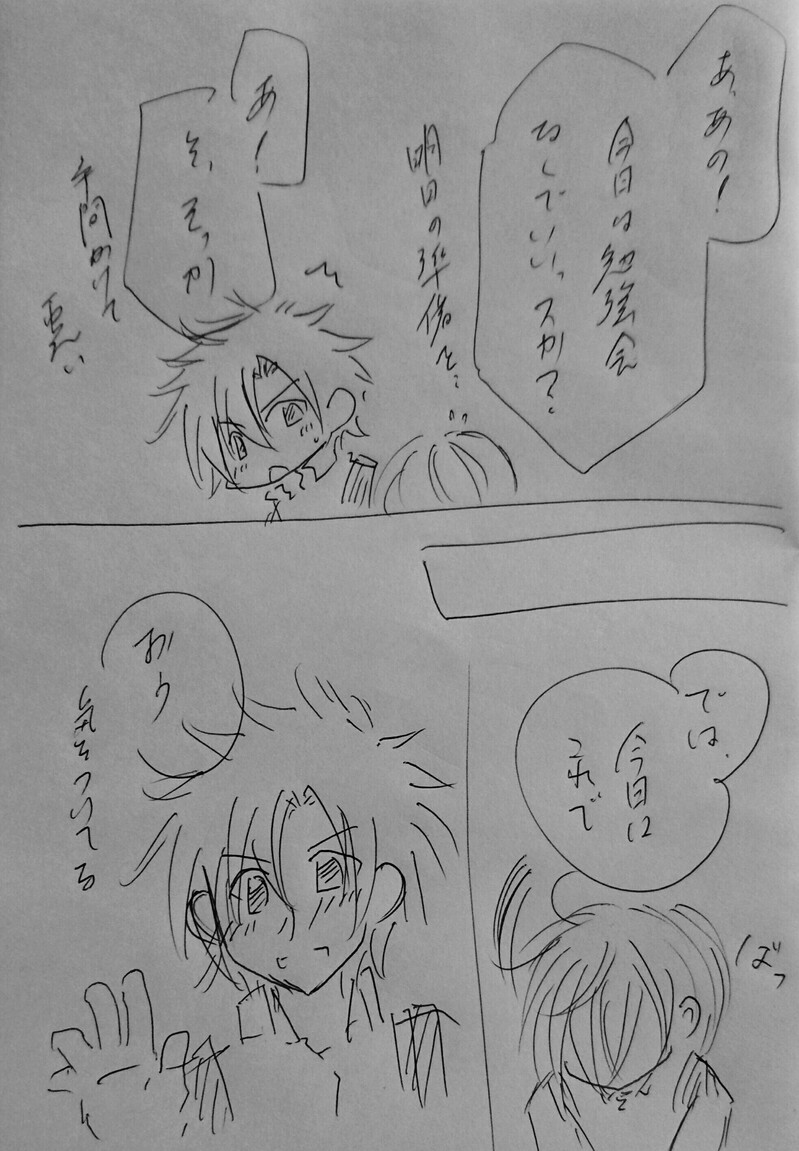 あ、あの!
今日は勉強会
なしでいいっスか?
明日の準備を…
あ!
そ、そっか
手間かけて
悪い
では、
今日は
これで
ばっ
おう
気をつけてな